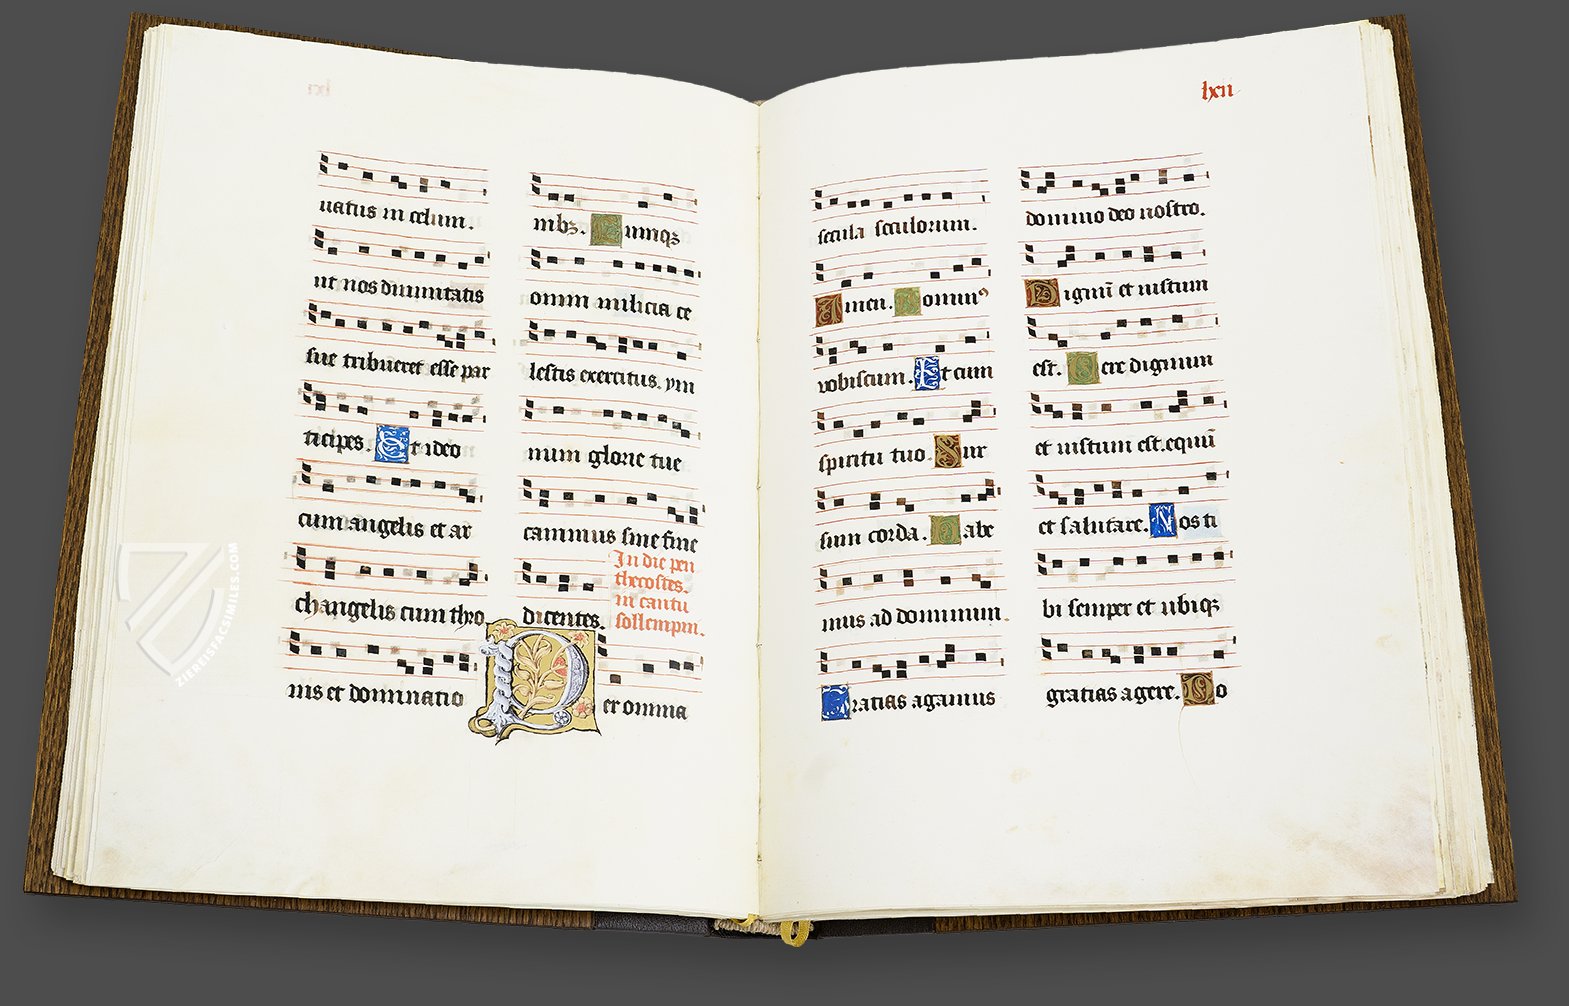 uatus in celum.
ut nos diuinitatis
sue tribueret esse par
ticipes. Et ideo
cum angelis et ar
changelis cum thro
nis et dominatio
nibꝫ. Cumqꝫ
omni milicia ce
lestis exercitus. ym
num glorie tue
canimus sine fine
dicentes.
In die pen
thecostes.
in cantu
sollempni.
Per omnia
lxii
secula seculorum.
Amen. Dominꝰ
vobiscum. Et cum
spiritu tuo. Sur
sum corda. Habe
mus ad dominum.
Gratias agamus
domino deo nostro.
Dignū et iustum
est. Vere dignum
et iustum est. equū
et salutare. Nos ti
bi semper et ubiqꝫ
gratias agere. Do
ZIEREISFACSIMILES.COM